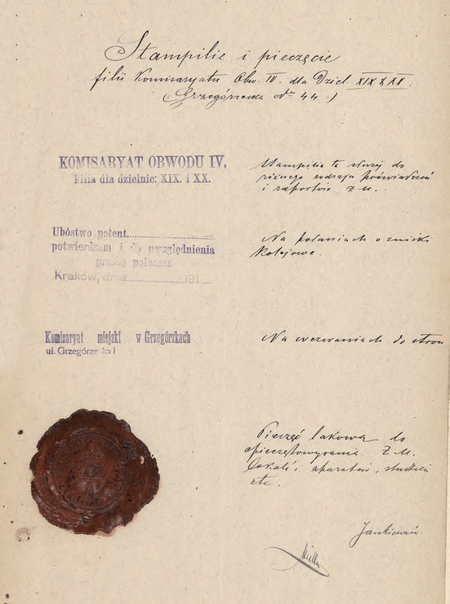 Stampilie i pieczęcie
filii Komisaryatu Obw. IV. dla Dzieln. XIX i XX.
(Grzegórzecka Nr 44)
KOMISARYAT OBWODU IV.
Filia dla dzielnic: XIX. i XX.
Stampilie te służą do
różnego rodzaju poświadczeń
i raportów z M.
Ubóstwo potent.
potwierdzam i do uwzględnienia
proszę polecam
Kraków, dnia 191
Na podaniach o zniżki
kolejowe.
Komisaryat miejski w Grzegórzkach
ul. Grzegórzecka
Na wezwaniach do stron
Pieczęć lakowa do
opieczętowywania z M.
lokali, aparatów,
etc.